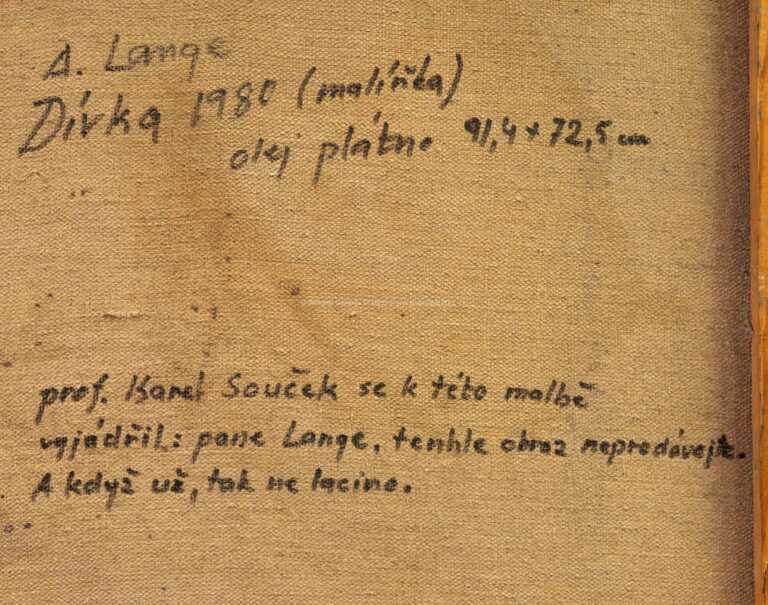 A. Lange
Dívka 1980 (malířka)
olej plátno 91,4 x 72,5 cm
prof. Karel Souček se k této malbě
vyjádřil: pane Lange, tenhle obraz neprodávejte.
A když už, tak ne lacino.